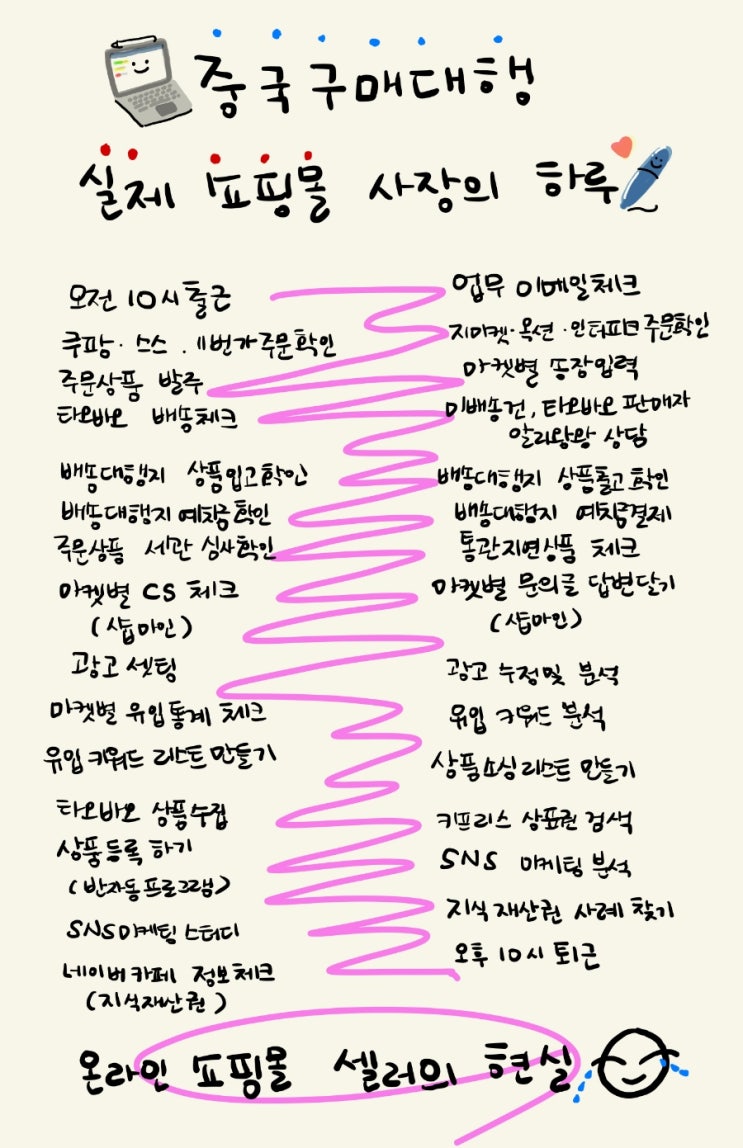 중국구매대행
실제 쇼핑몰 사장의 하루
오전 10시 출근
업무 이메일체크
쿠팡·스스·11번가 주문확인
지마켓·옥션·인터파크 주문확인
주문상품 발주
마켓별 송장입력
타오바오 배송체크
미배송건, 타오바오 판매자
알리왕왕 상담
배송대행지 상품입고확인
배송대행지 상품출고확인
배송대행지 예치금확인
배송대행지 예치금결제
주문상품 세관 심사확인
통관지연상품 체크
마켓별 CS 체크
(샵마인)
마켓별 문의글 답변달기
(샵마인)
광고 셋팅
광고 수정및 분석
마켓별 유입통계 체크
유입 키워드 분석
유입 키워드 리스트 만들기
상품소싱리스트 만들기
타오바오 상품수집
키프리스 상표권 검색
상품등록 하기
(반자동프로그램)
SNS 마케팅 분석
SNS마케팅 스터디
지식재산권 사례 찾기
네이버카페 정보체크
(지식재산권)
오후 10시 퇴근
온라인 쇼핑몰 셀러의 현실